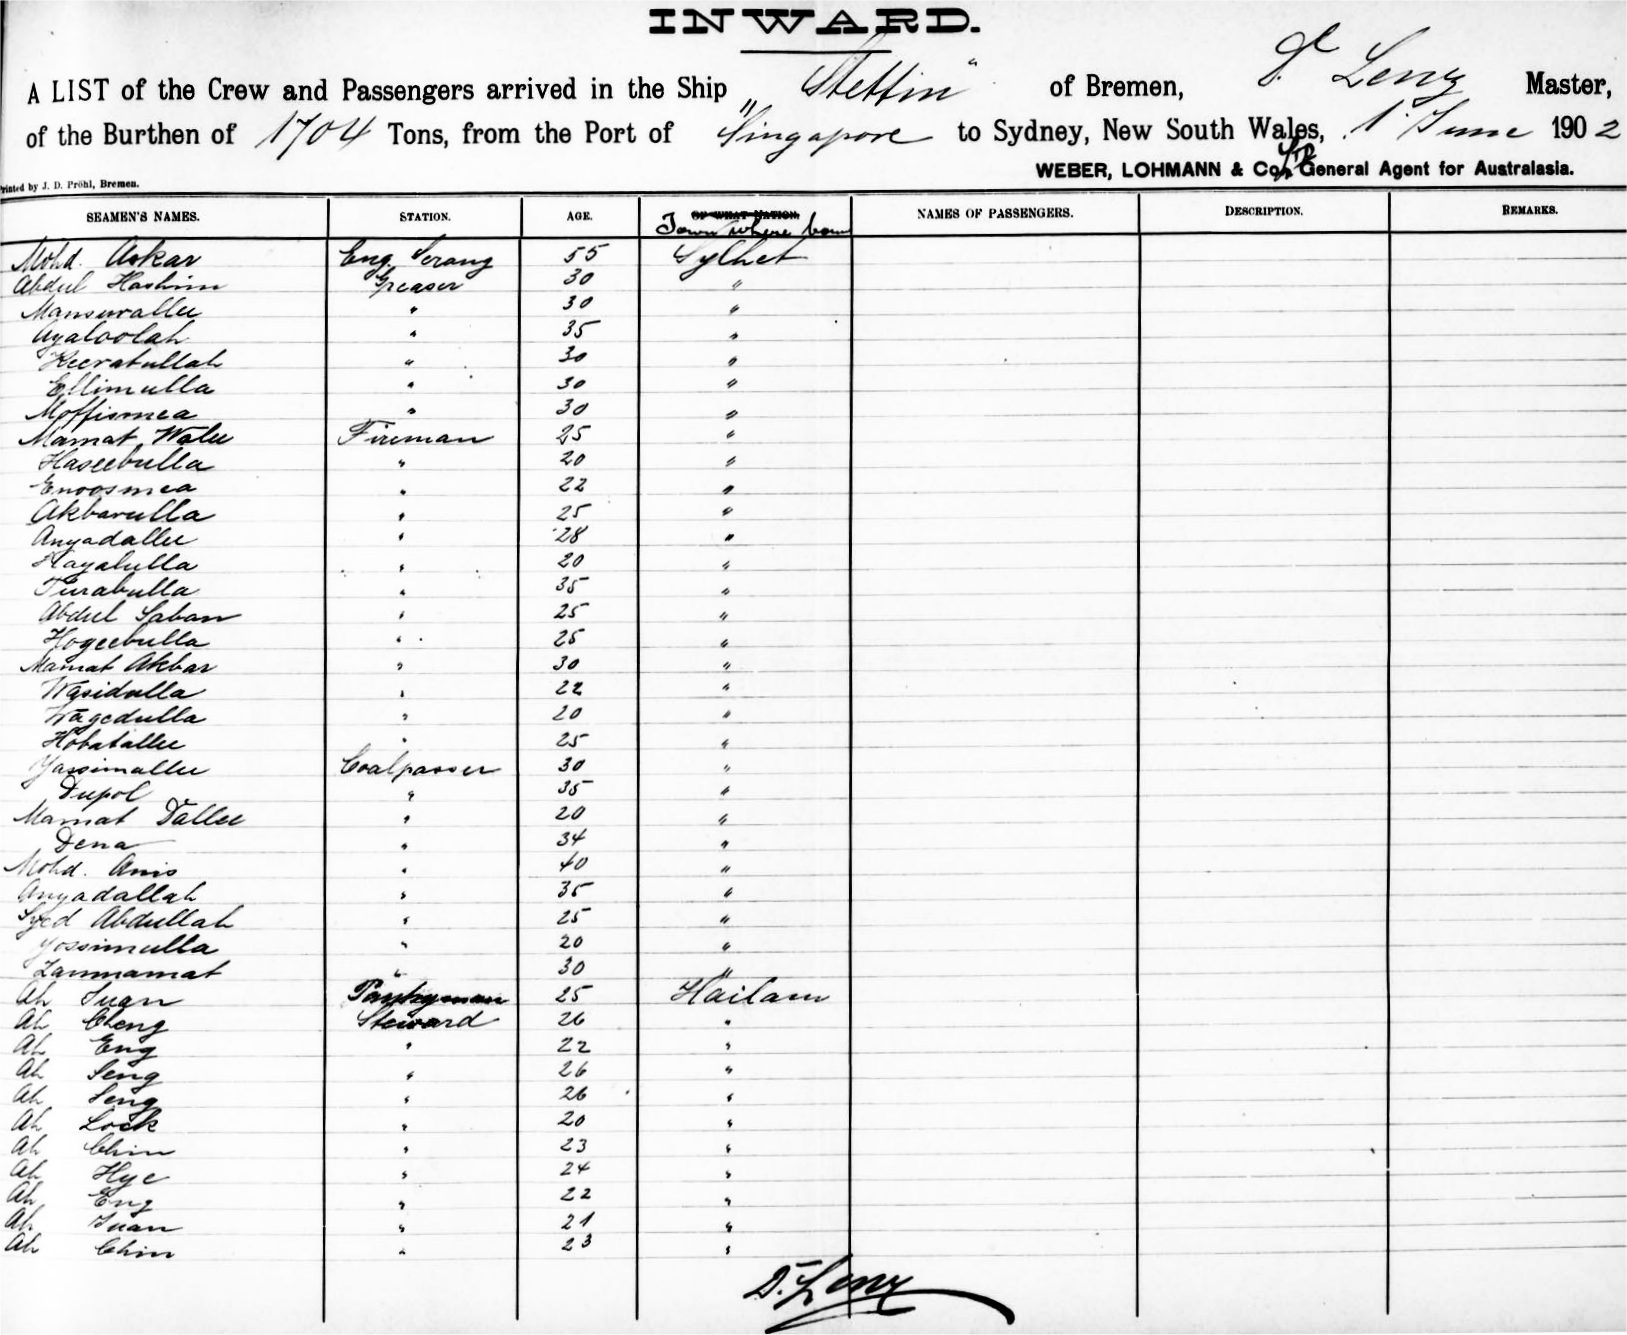 INWARD.
A LIST of the Crew and Passengers arrived in the Ship „Stettin“ of Bremen, D. Lenz Master,
of the Burthen of 1704 Tons, from the Port of Singapore to Sydney, New South Wales, 1. June 1902
WEBER, LOHMANN & Co. Ld General Agent for Australasia.
Printed by J. D. Pröhl, Bremen.
SEAMEN'S NAMES. STATION. AGE. OF WHAT NATION. NAMES OF PASSENGERS. DESCRIPTION. REMARKS.
Town where born
Mohd. Askar Eng. Serang 55 Sylhet
Abdul Hashim Greaser 30 "
Mansurallee " 30 "
Ayaloolah " 35 "
Keeratullah " 30 "
Ellimulla " 30 "
Moffismea " 30 "
Mamat Walee Fireman 25 "
Haseebulla " 20 "
Enoosmea " 22 "
Akbarulla " 25 "
Anyadallee " 28 "
Hayatulla " 20 "
Turabulla " 35 "
Abdul Saban " 25 "
Hogeebulla " 25 "
Mamat Akbar " 30 "
Wasidulla " 22 "
Wagedulla " 20 "
Hobatallee " 25 "
Yassimallee Coalpasser 30 "
Dupol " 35 "
Mamat Dallee " 20 "
Dena " 34 "
Mohd. Anis " 40 "
Anyadallah " 35 "
Syed Abdullah " 25 "
Yossimulla " 20 "
Zammamat " 30 "
Ah Juan Pantryman 25 Hailam
Ah Cheng Steward 26 "
Ah Eng " 22 "
Ah Seng " 26 "
Ah Seng " 26 "
Ah Lock " 20 "
Ah Chin " 23 "
Ah Hye " 24 "
Ah Eng " 22 "
Ah Juan " 21 "
Ah Chin " 23 "
D. Lenz